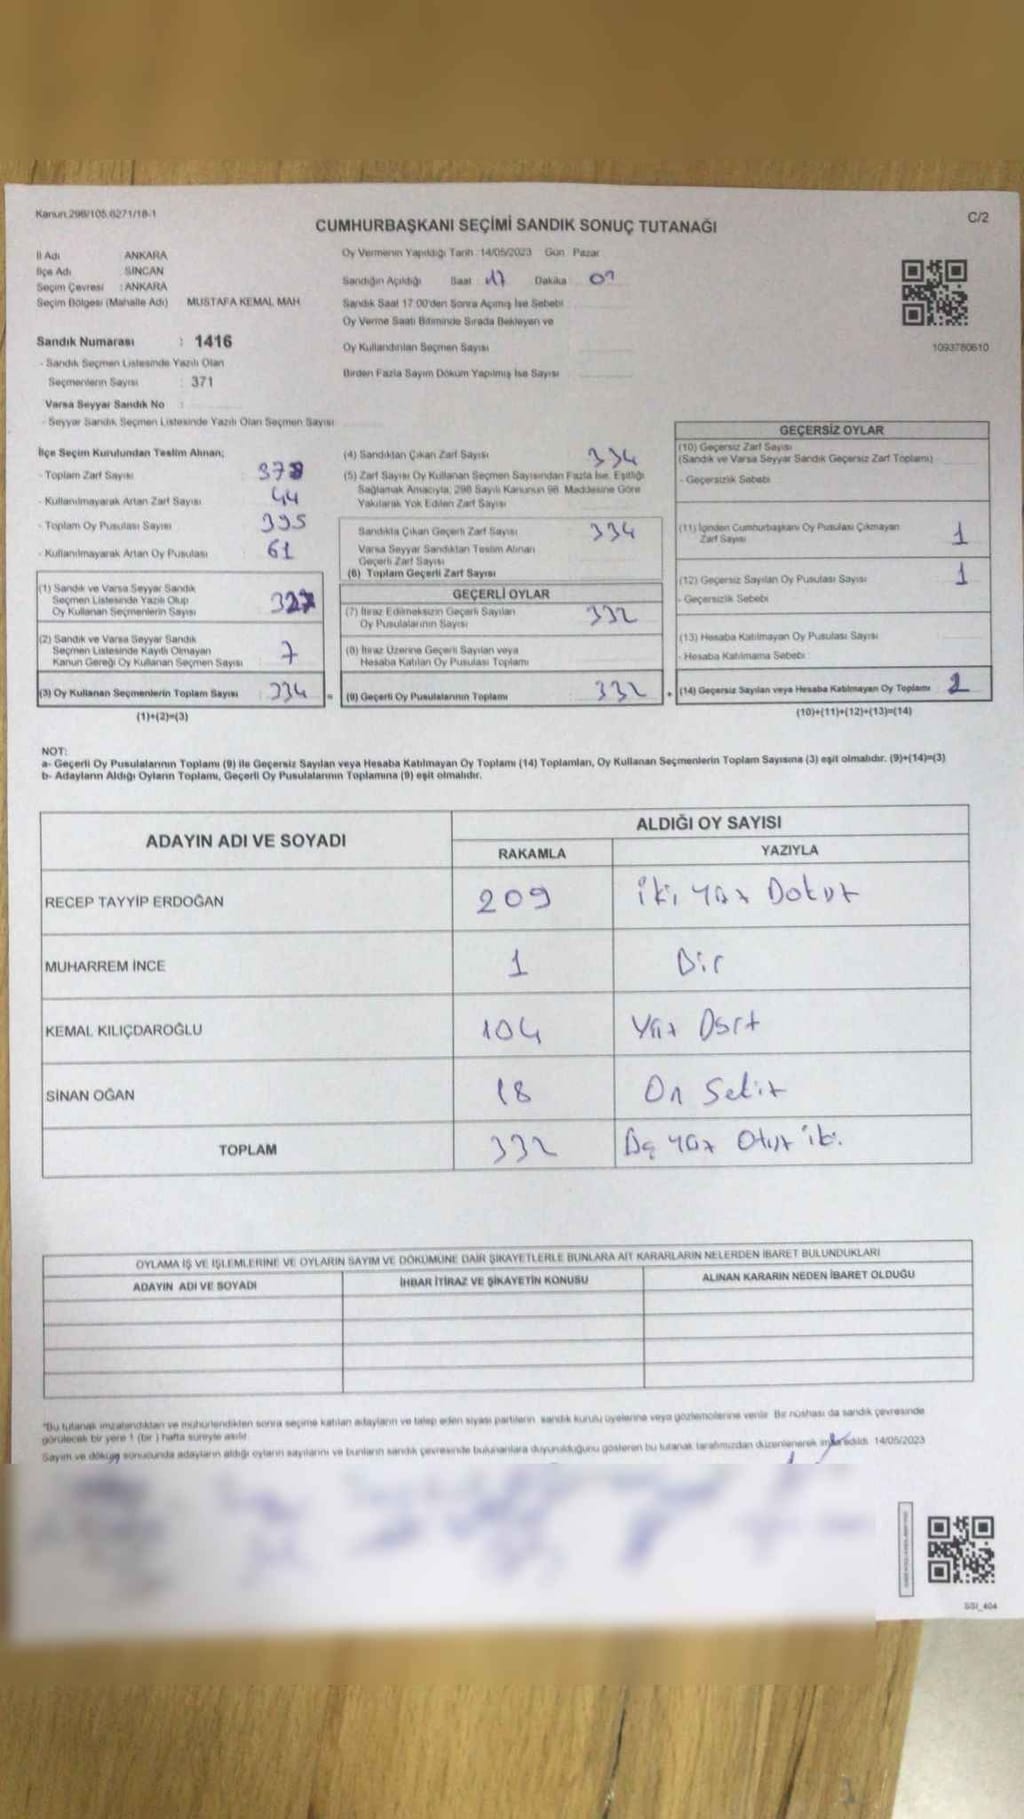 Kanun 298/105.6271/18-1
C/2
CUMHURBAŞKANI SEÇİMİ SANDIK SONUÇ TUTANAĞI
İl Adı ANKARA
İlçe Adı SİNCAN
Seçim Çevresi : ANKARA
Seçim Bölgesi (Mahalle Adı) MUSTAFA KEMAL MAH
Sandık Numarası : 1416
- Sandık Seçmen Listesinde Yazılı Olan
Seçmenlerin Sayısı : 371
Varsa Seyyar Sandık No :
- Seyyar Sandık Seçmen Listesinde Yazılı Olan Seçmen Sayısı
Oy Vermenin Yapıldığı Tarih 14/05/2023 Gün Pazar
Sandığın Açıldığı Saat 17 Dakika
Sandık Saat 17:00'den Sonra Açılmış İse Sebebi
Oy Verme Saati Bitiminde Sırada Bekleyen ve
Oy Kullandırılan Seçmen Sayısı
Birden Fazla Sayım Döküm Yapılmış İse Sayısı
1093780610
İlçe Seçim Kurulundan Teslim Alınan;
- Toplam Zarf Sayısı 378
- Kullanılmayarak Artan Zarf Sayısı 44
- Toplam Oy Pusulası Sayısı 395
- Kullanılmayarak Artan Oy Pusulası 61
(1) Sandık ve Varsa Seyyar Sandık
Seçmen Listesinde Yazılı Olup
Oy Kullanan Seçmenlerin Sayısı 327
(2) Sandık ve Varsa Seyyar Sandık
Seçmen Listesinde Kayıtlı Olmayan
Kanun Gereği Oy Kullanan Seçmen Sayısı 7
(3) Oy Kullanan Seçmenlerin Toplam Sayısı 334 =
(1)+(2)=(3)
(4) Sandıktan Çıkan Zarf Sayısı 334
(5) Zarf Sayısı Oy Kullanan Seçmen Sayısından Fazla İse, Eşitliği
Sağlamak Amacıyla; 298 Sayılı Kanunun 98. Maddesine Göre
Yakılarak Yok Edilen Zarf Sayısı
Sandıkta Çıkan Geçerli Zarf Sayısı 334
Varsa Seyyar Sandıktan Teslim Alınan
Geçerli Zarf Sayısı
(6) Toplam Geçerli Zarf Sayısı
GEÇERLİ OYLAR
(7) İtiraz Edilmeksizin Geçerli Sayılan
Oy Pusulalarının Sayısı 332
(8) İtiraz Üzerine Geçerli Sayılan veya
Hesaba Katılan Oy Pusulası Toplamı
(9) Geçerli Oy Pusulalarının Toplamı 332 +
GEÇERSİZ OYLAR
(10) Geçersiz Zarf Sayısı
(Sandık ve Varsa Seyyar Sandık Geçersiz Zarf Toplamı)
- Geçersizlik Sebebi
(11) İçinden Cumhurbaşkanı Oy Pusulası Çıkmayan
Zarf Sayısı 1
(12) Geçersiz Sayılan Oy Pusulası Sayısı 1
- Geçersizlik Sebebi
(13) Hesaba Katılmayan Oy Pusulası Sayısı
- Hesaba Katılmama Sebebi :
(14) Geçersiz Sayılan veya Hesaba Katılmayan Oy Toplamı 2
(10)+(11)+(12)+(13)=(14)
NOT:
a- Geçerli Oy Pusulalarının Toplamı (9) ile Geçersiz Sayılan veya Hesaba Katılmayan Oy Toplamı (14) Toplamları, Oy Kullanan Seçmenlerin Toplam Sayısına (3) eşit olmalıdır. (9)+(14)=(3)
b- Adayların Aldığı Oyların Toplamı, Geçerli Oy Pusulalarının Toplamına (9) eşit olmalıdır.
ADAYIN ADI VE SOYADI
ALDIĞI OY SAYISI
RAKAMLA YAZIYLA
RECEP TAYYİP ERDOĞAN 209 İki yüz Dokuz
MUHARREM İNCE 1 Bir
KEMAL KILIÇDAROĞLU 104 Yüz Dört
SİNAN OĞAN 18 On Sekiz
TOPLAM 332 Üç yüz Otuz iki.
OYLAMA İŞ VE İŞLEMLERİNE VE OYLARIN SAYIM VE DÖKÜMÜNE DAİR ŞİKAYETLERLE BUNLARA AİT KARARLARIN NELERDEN İBARET BULUNDUKLARI
ADAYIN ADI VE SOYADI İHBAR İTİRAZ VE ŞİKAYETİN KONUSU ALINAN KARARIN NEDEN İBARET OLDUĞU
"Bu tutanak imzalandıktan ve mühürlendikten sonra seçime katılan adayların ve talep eden siyasi partilerin sandık kurulu üyelerine veya gözlemcilerine verilir. Bir nüshası da sandık çevresinde
görülecek bir yere 1 (bir) hafta süreyle asılır.
Sayım ve döküm sonucunda adayların aldığı oyların sayılarını ve bunların sandık çevresinde bulunanlara duyurulduğunu gösteren bu tutanak tarafımızdan düzenlenerek imza edildi. 14/05/2023
SSI_404